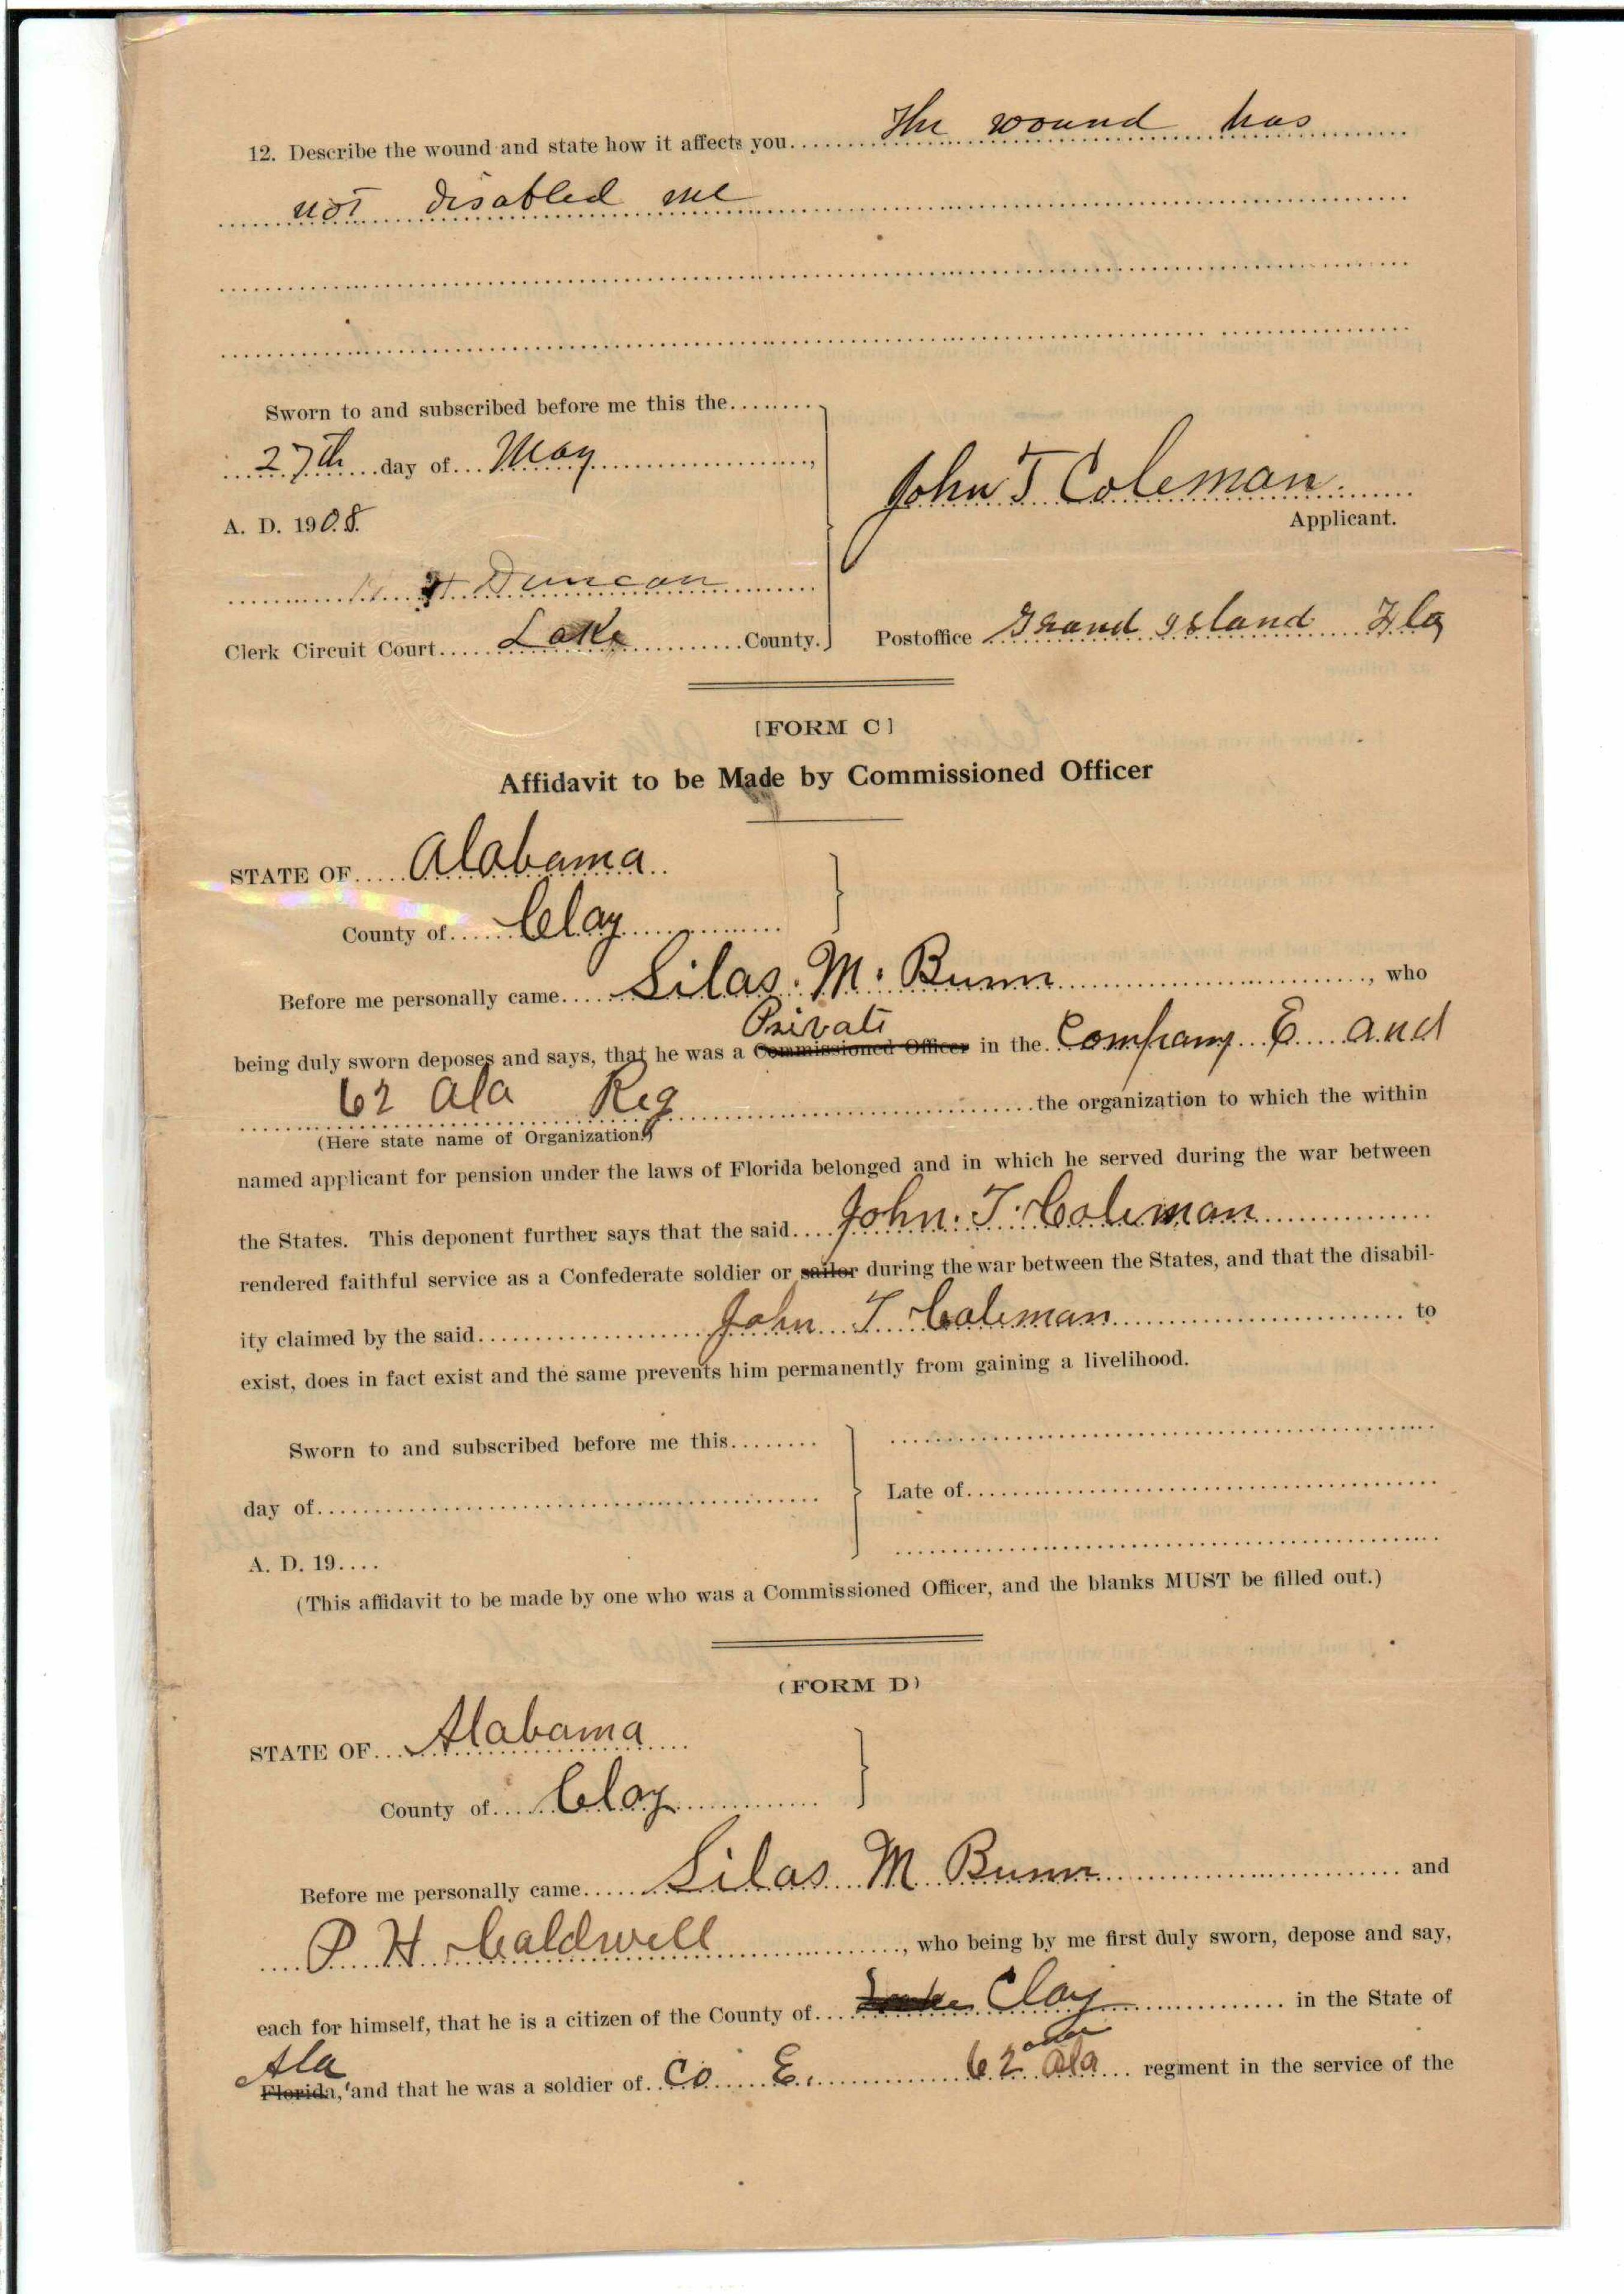 12. Describe the wound and state how it affects you........ The wound has
not disabled me
Sworn to and subscribed before me this the........
27th day of May
A. D. 1908.
H Duncan
Clerk Circuit Court..... Lake County.
John T Coleman
Applicant.
Postoffice Grand Island Fla
[FORM C]
Affidavit to be Made by Commissioned Officer
STATE OF..... Alabama
County of..... Clay
Before me personally came..... Silas. M. Bunn, who
Private
being duly sworn deposes and says, that he was a Commissioned Officer in the. Company E and
62 Ala Reg the organization to which the within
(Here state name of Organization.)
named applicant for pension under the laws of Florida belonged and in which he served during the war between
the States. This deponent further says that the said.... John. T. Coleman
rendered faithful service as a Confederate soldier or sailor during the war between the States, and that the disabil-
ity claimed by the said.................... John T Coleman to
exist, does in fact exist and the same prevents him permanently from gaining a livelihood.
Sworn to and subscribed before me this........
day of
Late of
A. D. 19....
(This affidavit to be made by one who was a Commissioned Officer, and the blanks MUST be filled out.)
(FORM D)
STATE OF... Alabama
County of..... Clay
Before me personally came..... Silas M Bunn and
P H Caldwell, who being by me first duly sworn, depose and say,
each for himself, that he is a citizen of the County of.... Lake Clay in the State of
Ala
Florida, and that he was a soldier of.. Co E. 62 Ala... regiment in the service of the